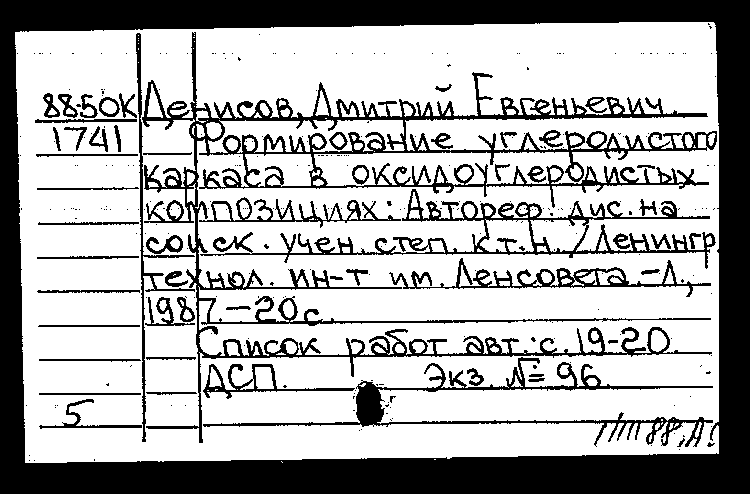 88-50К Денисов, Дмитрий Евгеньевич.
1741 Формирование углеродистого
каркаса в оксидоуглеродистых
композициях: Автореф. дис. на
соиск. учен. степ. к.т.н. / Ленингр.
технол. ин-т им. Ленсовета. - Л.,
1987. - 20 с.
Список работ авт.: с. 19-20.
ДСП. Экз. № 96.
5